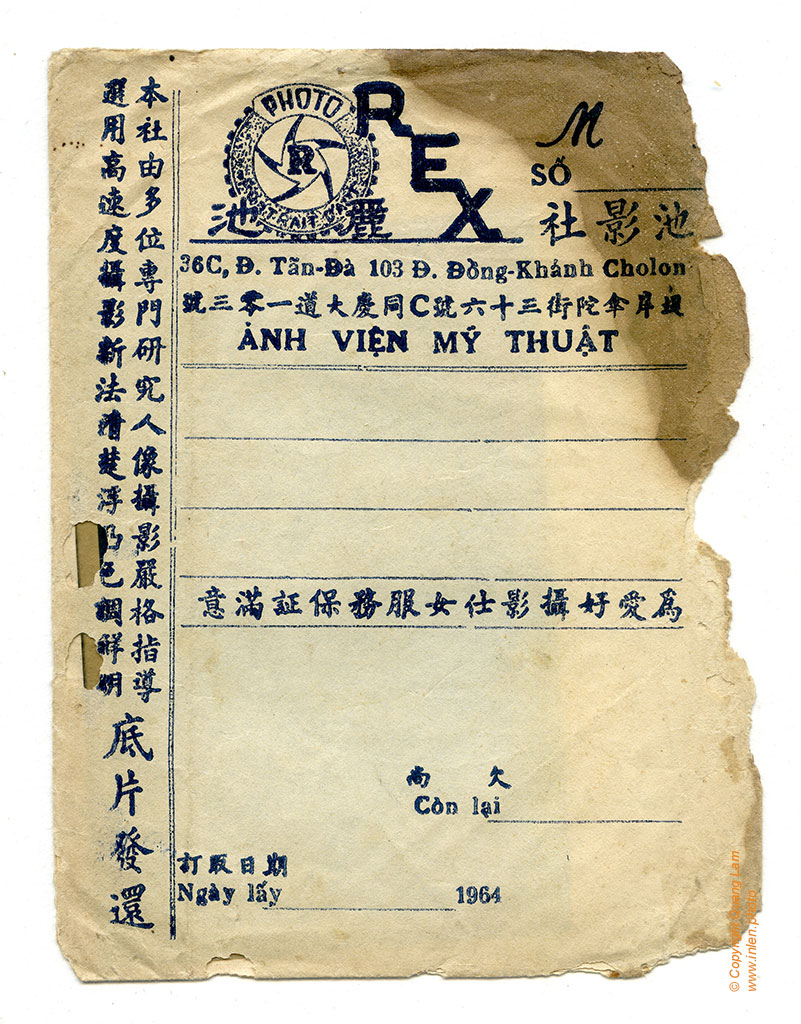 PHOTO
R
REX
M
SỐ
麗池
池影社
36C, Đ. Tãn-Đà 103 Đ. Đồng-Khánh Cholon
堤岸傘陀街三十六號C同慶大道一零三號
ẢNH VIỆN MỸ THUẬT
爲愛好攝影仕女服務保証滿意
尚欠
Còn lại
取日期
Ngày lấy 1964
本社由多位專門研究人像攝影嚴格指導
選用高速度攝影新法清楚浮凸色調鮮明
底片發還
© Copyright Hoang Lam
www.inlen.photo